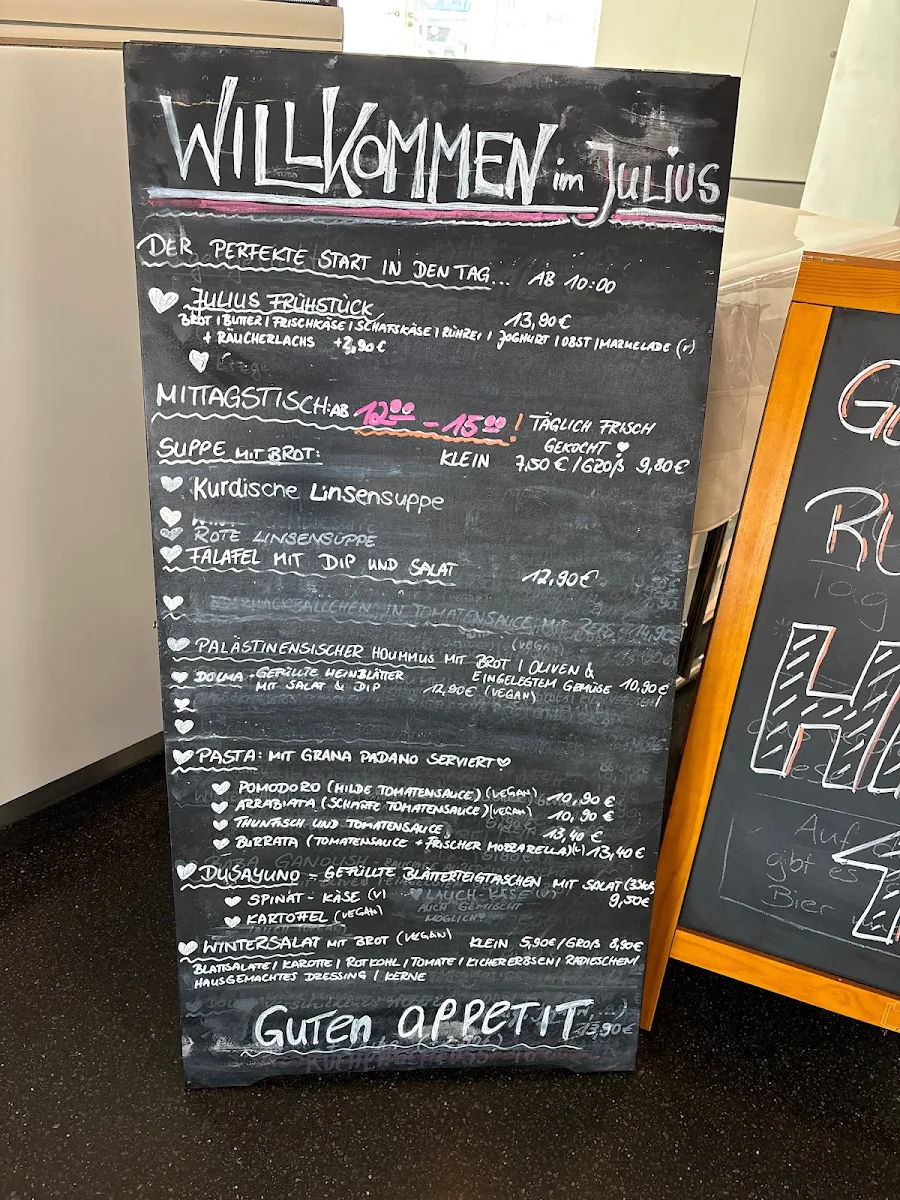 WILLKOMMEN im JULIUS
DER PERFEKTE START IN DEN TAG... AB 10:00
JULIUS FRÜHSTÜCK 13,90€
BROT | BUTTER | FRISCHKÄSE | SCHAFSKÄSE | RÜHREI | JOGHURT | OBST | MARMELADE (V)
+ RÄUCHERLACHS +2,90€
MITTAGSTISCH: AB 12⁰⁰ - 15⁰⁰! TÄGLICH FRISCH
GEKOCHT
SUPPE MIT BROT: KLEIN 7,50€ / GROß 9,80€
Kurdische Linsensuppe
ROTE LINSENSUPPE
FALAFEL MIT DIP UND SALAT 12,90€
IN TOMATENSAUCE MIT REIS
(VEGAN)
PALÄSTINENSISCHER HOUMMUS MIT BROT | OLIVEN &
EINGELEGTEM GEMÜSE 10,90€
DOLMA - GEFÜLLTE WEINBLÄTTER
MIT SALAT & DIP 12,90€ (VEGAN)
PASTA: MIT GRANA PADANO SERVIERT
POMODORO (MILDE TOMATENSAUCE) (VEGAN) 10,90€
ARRABIATA (SCHARFE TOMATENSAUCE) (VEGAN) 10,90€
THUNFISCH UND TOMATENSAUCE 13,40€
BURRATA (TOMATENSAUCE + FRISCHER MOZZARELLA) 13,40€
DUSAYUNO - GEFÜLLTE BLÄTTERTEIGTASCHEN MIT SALAT (3Stk)
9,50€
SPINAT - KÄSE (V) LAUCH-KÄSE (V)
AUCH GEMISCHT
MÖGLICH
KARTOFFEL (VEGAN)
WINTERSALAT MIT BROT (VEGAN) KLEIN 5,90€ / GROß 8,90€
BLATTSALATE | KAROTTE | ROTKOHL | TOMATE | KICHERERBSEN | RADIESCHEN |
HAUSGEMACHTES DRESSING | KERNE
Guten APPETIT
13,90€
Tag
Auf
gibt es
Bier